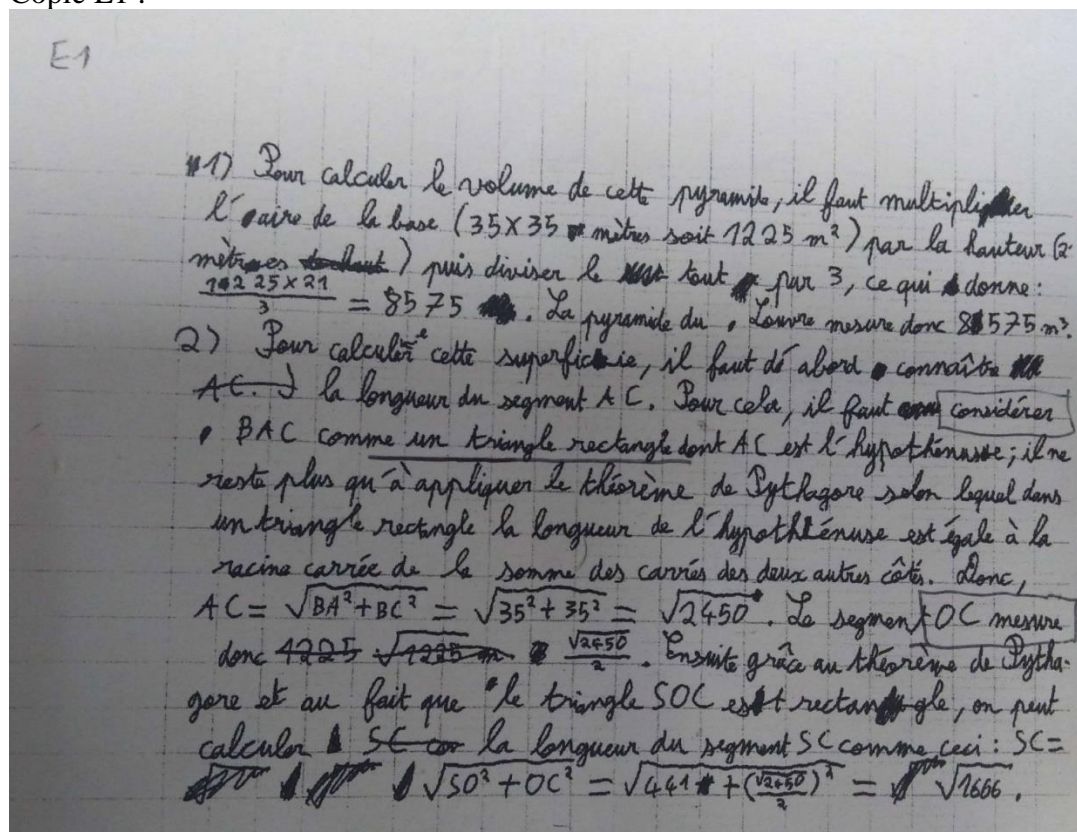 Copie E1 :
E-1
1) Pour calculer le volume de cette pyramide, il faut multiplier
l'aire de la base (35X35 mètres soit 1225 m²) par la hauteur (2
mètres ) puis diviser le tout par 3, ce qui donne :
1225x21/3 = 8575 . La pyramide du Louvre mesure donc 8575 m³.
2) Pour calculer cette superficie, il faut d'abord connaître
AC. la longueur du segment AC. Pour cela, il faut considérer
BAC comme un triangle rectangle dont AC est l'hypothénuse ; il ne
reste plus qu'à appliquer le théorème de Pythagore selon lequel dans
un triangle rectangle la longueur de l'hypothénuse est égale à la
racine carrée de la somme des carrés des deux autres côtés. Donc,
AC = √BA²+BC² = √35²+35² = √2450 . Le segment OC mesure
donc 1225 √1225 m √2450/2 . Ensuite grâce au théorème de Pytha-
gore et au fait que le triangle SOC est rectangle, on peut
calculer SC la longueur du segment SC comme ceci : SC =
√SO²+OC² = √441 + (√2450/2)² = √1666 .